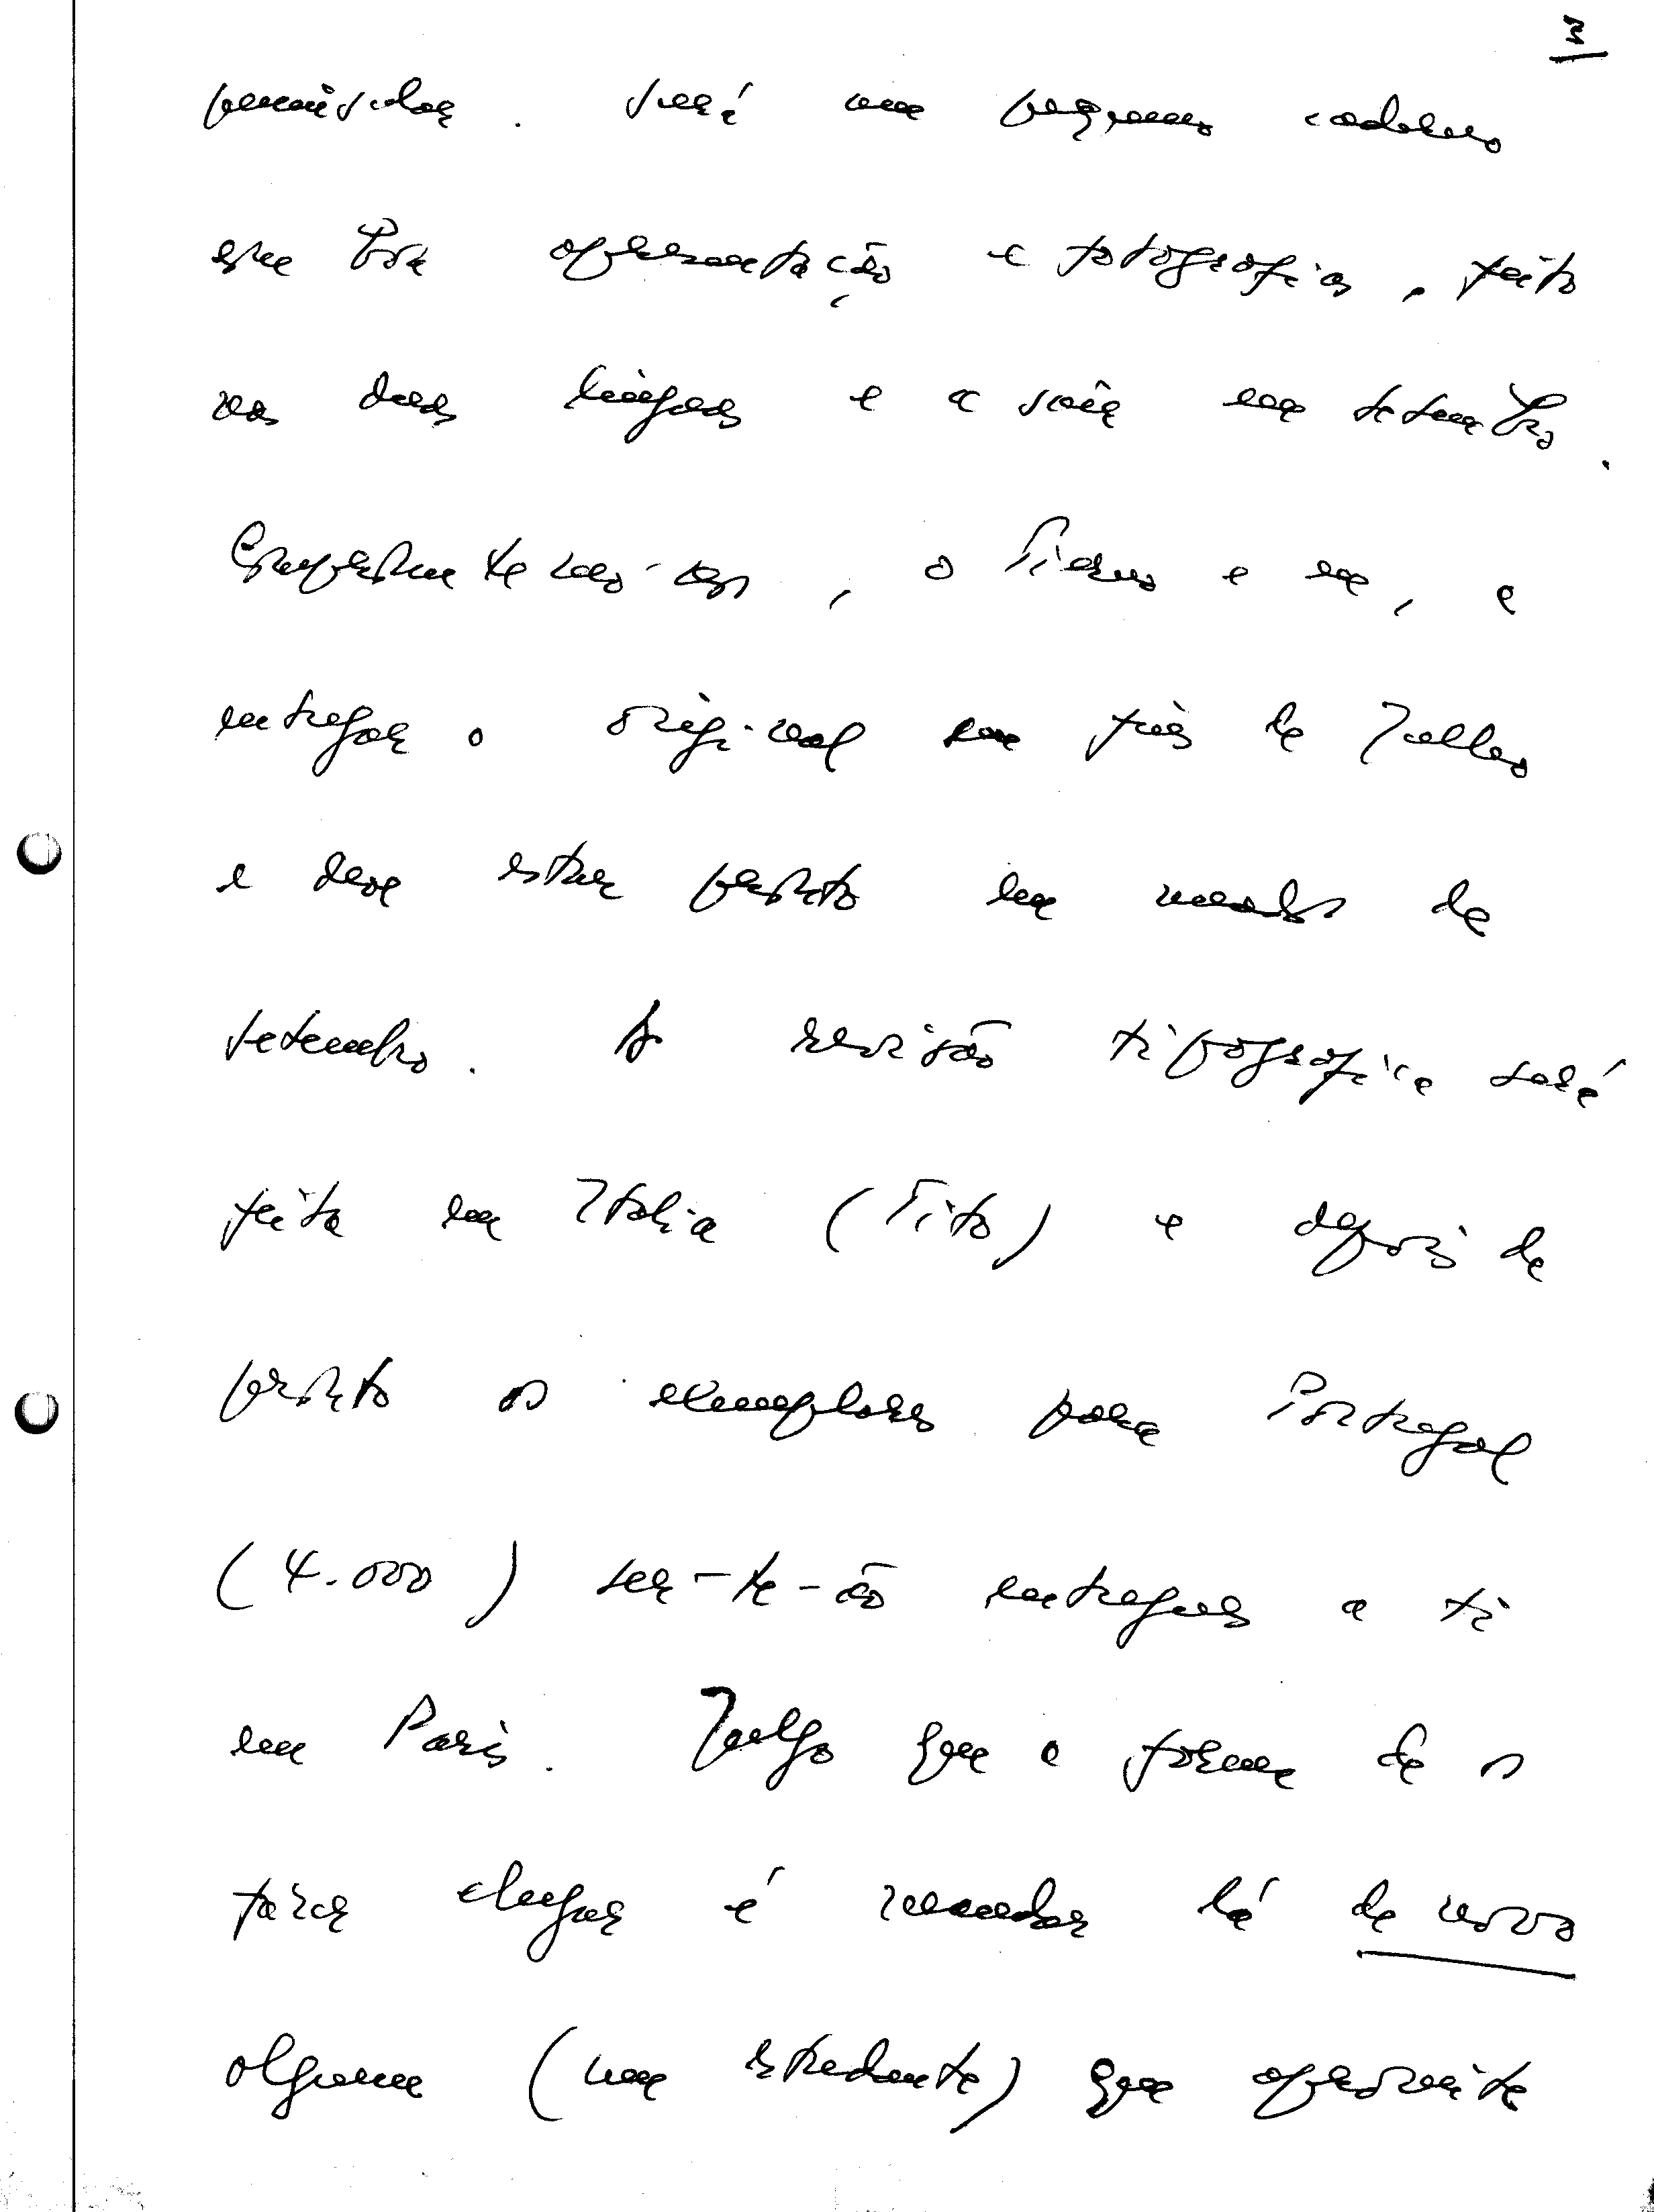 3
peninsular. Será um pequeno caderno
com boa apresentação e fotografias, feito
nas duas línguas e a sair em setembro.
Comprometemo-nos, o Tierno e eu, a
entregar o original em fins de Julho
e deve estar pronto em meados de
setembro. A revisão tipografica será
feita em Italia (Tito) e depois de
pronto os exemplares para Portugal
(4.000) ser-te-ão entregues a ti
em Paris. Julgo que a forma de os
fazer chegar é mandar lá de novo
alguem (um estudante) que aproveite